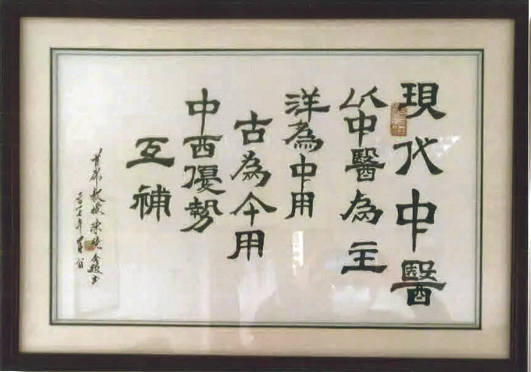 現代中醫
以中醫為主
洋為中用
古為今用
中西優勢
互補